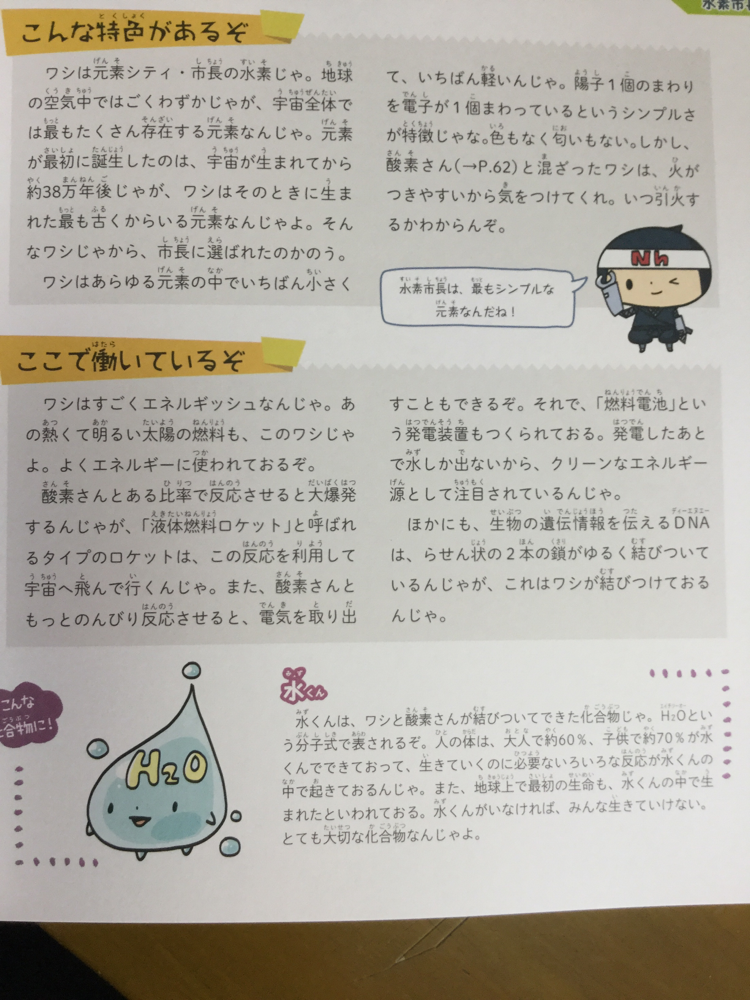 水素市長
こんな特色があるぞ
ワシは元素シティ・市長の水素じゃ。地球
の空気中ではごくわずかじゃが、宇宙全体で
は最もたくさん存在する元素なんじゃ。元素
が最初に誕生したのは、宇宙が生まれてから
約38万年後じゃが、ワシはそのときに生ま
れた最も古くからいる元素なんじゃよ。そん
なワシじゃから、市長に選ばれたのかのう。
ワシはあらゆる元素の中でいちばん小さく
て、いちばん軽いんじゃ。陽子1個のまわり
を電子が1個まわっているというシンプルさ
が特徴じゃな。色もなく匂いもない。しかし、
酸素さん(→P.62)と混ざったワシは、火が
つきやすいから気をつけてくれ。いつ引火す
るかわからんぞ。
Nh
水素市長は、最もシンプルな
元素なんだね!
ここで働いているぞ
ワシはすごくエネルギッシュなんじゃ。あ
の熱くて明るい太陽の燃料も、このワシじゃ
よ。よくエネルギーに使われておるぞ。
酸素さんとある比率で反応させると大爆発
するんじゃが、「液体燃料ロケット」と呼ばれ
るタイプのロケットは、この反応を利用して
宇宙へ飛んで行くんじゃ。また、酸素さんと
もっとのんびり反応させると、電気を取り出
すこともできるぞ。それで、「燃料電池」とい
う発電装置もつくられておる。発電したあと
で水しか出ないから、クリーンなエネルギー
源として注目されているんじゃ。
ほかにも、生物の遺伝情報を伝えるDNA
は、らせん状の2本の鎖がゆるく結びついて
いるんじゃが、これはワシが結びつけておる
んじゃ。
こんな
合物に!
H2O
水くん
水くんは、ワシと酸素さんが結びついてできた化合物じゃ。H2Oとい
う分子式で表されるぞ。人の体は、大人で約60%、子供で約70%が水
くんでできておって、生きていくのに必要ないろいろな反応が水くんの
中で起きておるんじゃ。また、地球上で最初の生命も、水くんの中で生
まれたといわれておる。水くんがいなければ、みんな生きていけない。
とても大切な化合物なんじゃよ。